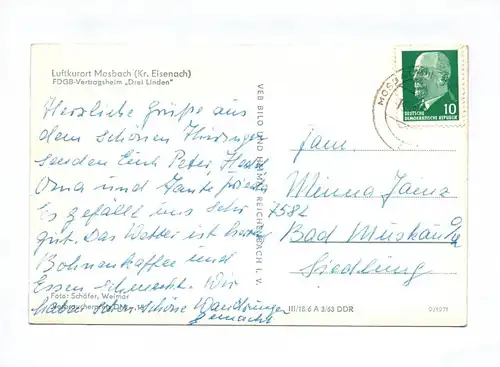 Luftkurort Mosbach (Kr. Eisenach)
FDGB-Vertragsheim „Drei Linden"
Herzliche Grüße aus
dem schönen Thüringen
senden Euch Peter,
Oma und Tante
Es gefällt uns sehr
gut. Das Wetter ist
Bohnenkaffee und
Essen schmeckt. Wir
haben schon schöne Wandrungen
gemacht
Foto: Schäfer, Weimar
VEB BILD UND HEIMAT REICHENBACH I. V.
MOSB
10
DEUTSCHE
DEMOKRATISCHE REPUBLIK
Fam.
Minna
7582
Bad Muskau
Siedlung
III/18/6 A 3/63 DDR